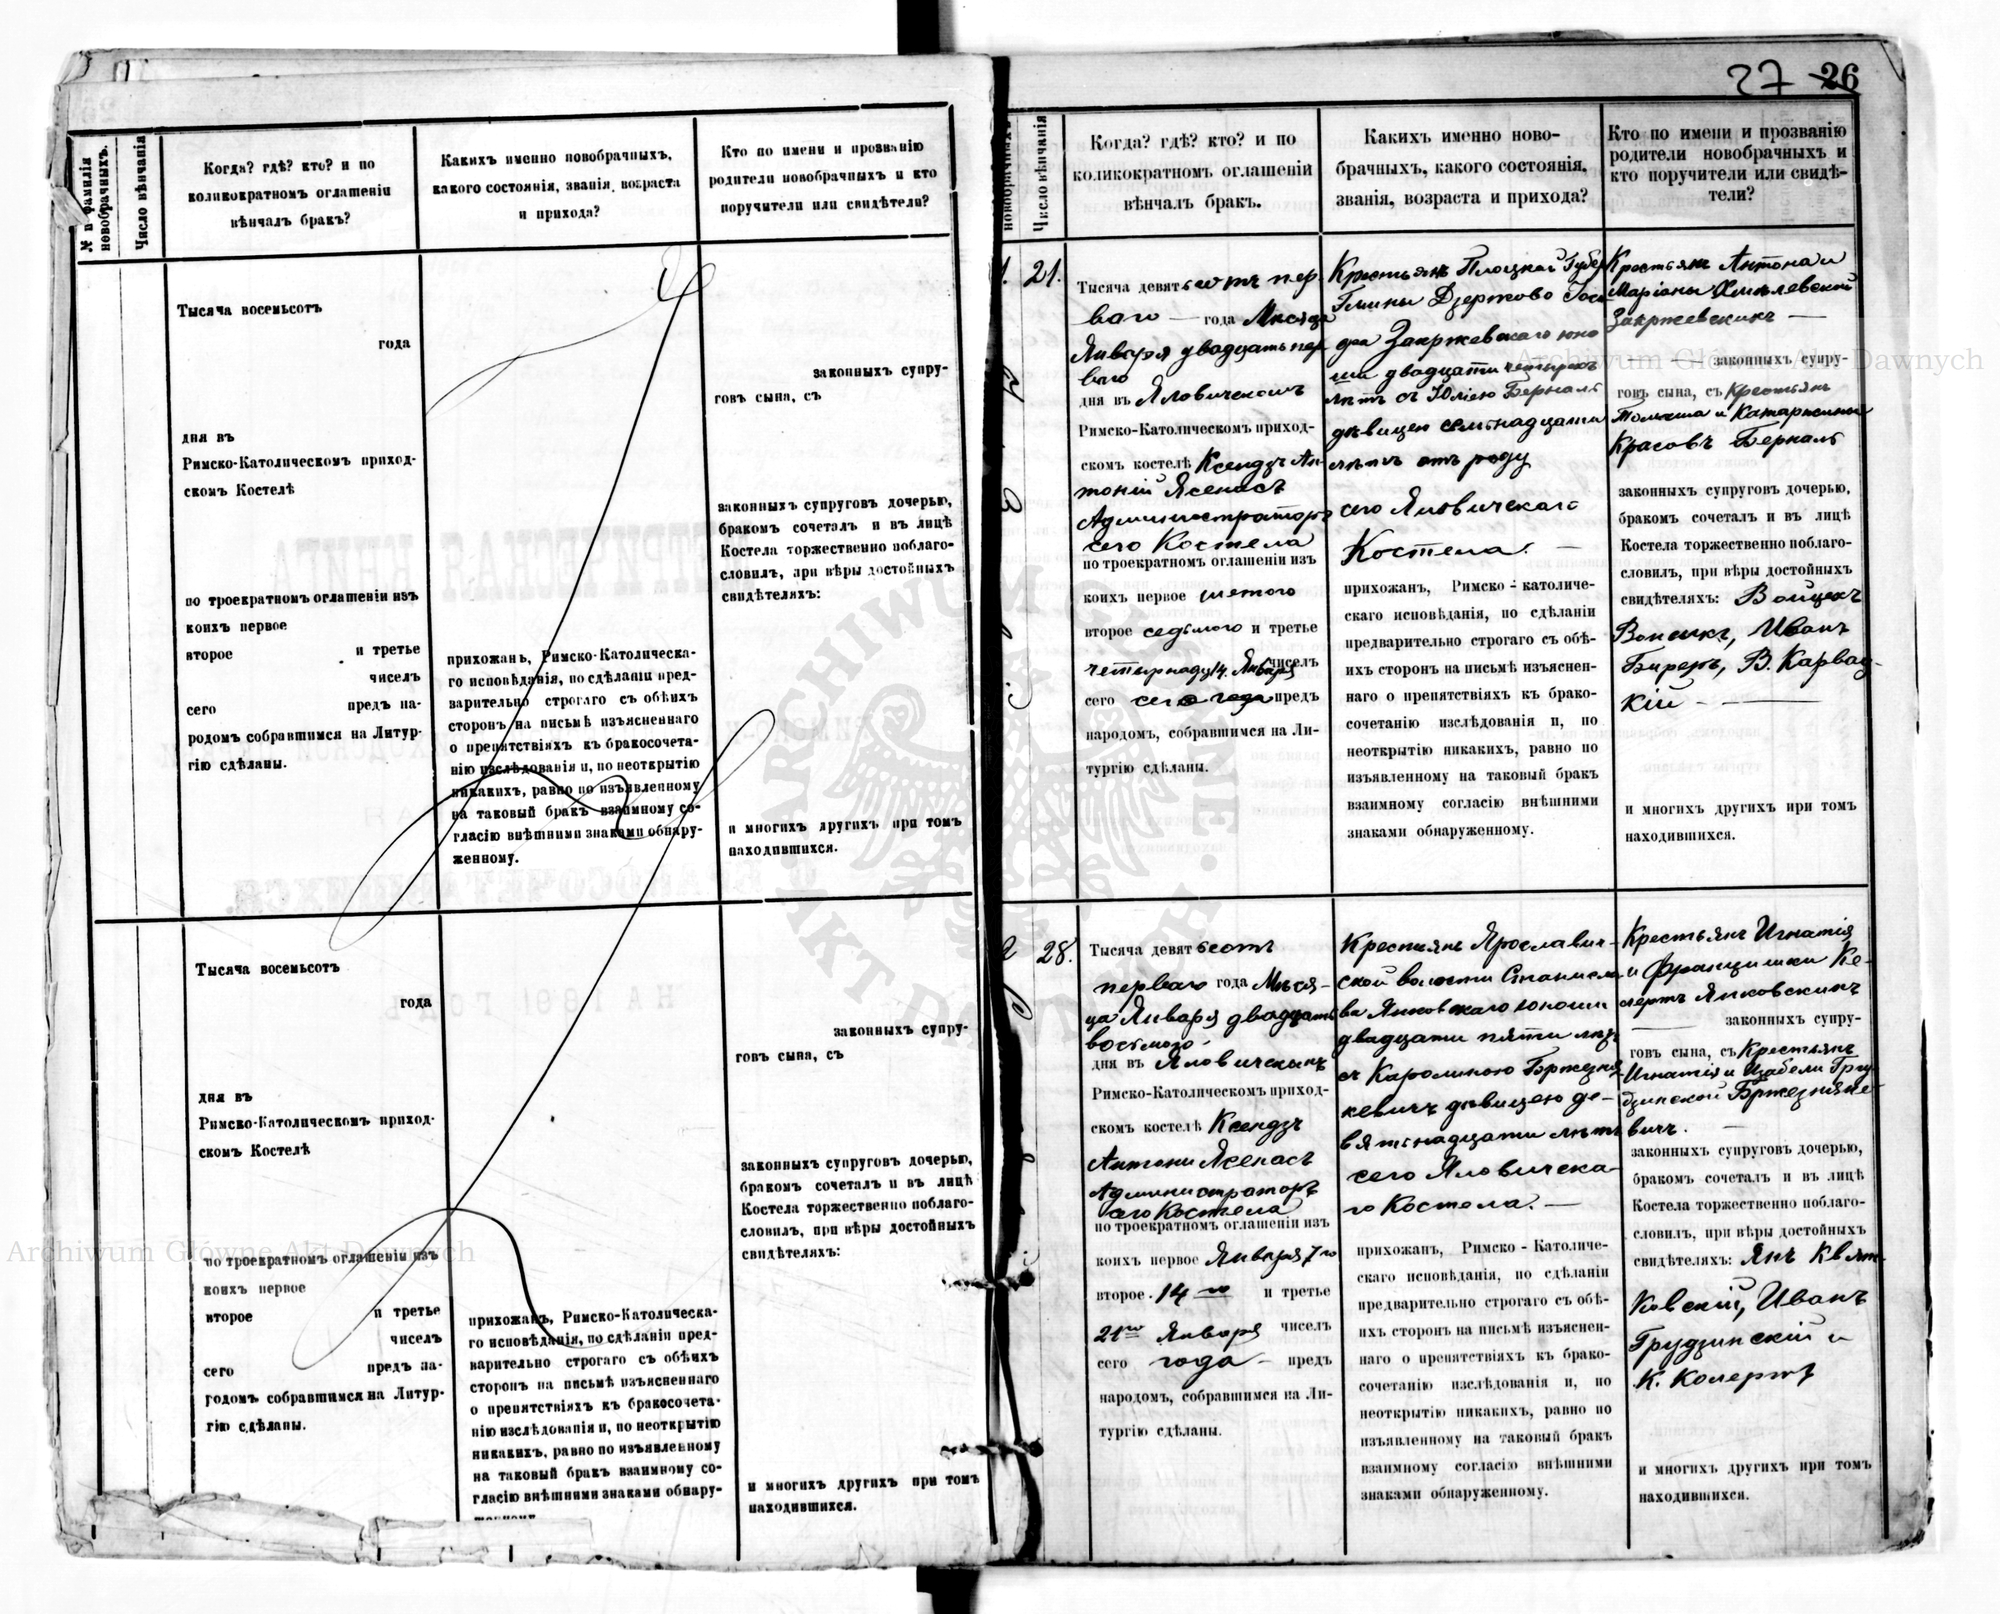 27 26
№ и фамилія новобрачныхъ.
Число вѣнчанія
Когда? гдѣ? кто? и по
коликократномъ оглашеніи
вѣнчалъ бракъ?
Какихъ именно новобрачныхъ,
какого состоянія, званія, возраста
и прихода?
Кто по имени и прозванію
родители новобрачныхъ и кто
поручители или свидѣтели?
Тысяча восемьсотъ
года
дня въ
Римско-Католическомъ приход-
скомъ Костелѣ
по троекратномъ оглашеніи изъ
коихъ первое
второе и третье
чиселъ
сего предъ на-
родомъ собравшимся на Литур-
гію сдѣланы.
прихожанъ, Римско-Католическа-
го исповѣданія, по сдѣланіи пред-
варительно строгаго съ обѣихъ
сторонъ на письмѣ изъясненнаго
о препятствіяхъ къ бракосочета-
нію изслѣдованія и, по неоткрытію
никакихъ, равно по изъявленному
на таковый бракъ взаимному со-
гласію внѣшними знаками обнару-
женному.
законныхъ супру-
говъ сына, съ
законныхъ супруговъ дочерью,
бракомъ сочеталъ и въ лицѣ
Костела торжественно поблаго-
словилъ, при вѣры достойныхъ
свидѣтеляхъ:
и многихъ другихъ при томъ
находившихся.
Тысяча восемьсотъ
года
дня въ
Римско-Католическомъ приход-
скомъ Костелѣ
по троекратномъ оглашеніи изъ
коихъ первое
второе и третье
чиселъ
сего предъ на-
родомъ собравшимся на Литур-
гію сдѣланы.
прихожанъ, Римско-Католическа-
го исповѣданія, по сдѣланіи пред-
варительно строгаго съ обѣихъ
сторонъ на письмѣ изъясненнаго
о препятствіяхъ къ бракосочета-
нію изслѣдованія и, по неоткрытію
никакихъ, равно по изъявленному
на таковый бракъ взаимному со-
гласію внѣшними знаками обнару-
законныхъ супру-
говъ сына, съ
законныхъ супруговъ дочерью,
бракомъ сочеталъ и въ лицѣ
Костела торжественно поблаго-
словилъ, при вѣры достойныхъ
свидѣтеляхъ:
и многихъ другихъ при томъ
находившихся.
новобрачныхъ
Число вѣнчанія
Когда? гдѣ? кто? и по
коликократномъ оглашеніи
вѣнчалъ бракъ.
Какихъ именно ново-
брачныхъ, какого состоянія,
званія, возраста и прихода?
Кто по имени и прозванію
родители новобрачныхъ и
кто поручители или свидѣ-
тели?
1. 21.
Тысяча девятьсотъ пер-
ваго — года Мѣсяца
Января двадцать пер-
ваго
дня въ Яловичскомъ
Римско-Католическомъ приход-
скомъ костелѣ Ксендзъ Ан-
тоній Ясенасъ
Администраторъ
сего Костела
по троекратномъ оглашеніи изъ
коихъ первое шетого
второе седьмого и третье
четырнадц 14. Января чиселъ
сего сего года предъ
народомъ, собравшимся на Ли-
тургію сдѣланы.
Крестьянъ Плоцкой Губер
Гмины Дзержово
Закржевскаго юно
ши двадцати четырехъ
лѣтъ съ Юліею Берналь
дѣвицею семьнадцати
лѣтъ отъ роду
сего Яловичскаго
Костела. —
прихожанъ, Римско-католиче-
скаго исповѣданія, по сдѣланіи
предварительно строгаго съ обѣ-
ихъ сторонъ на письмѣ изъяснен-
наго о препятствіяхъ къ брако-
сочетанію изслѣдованія и, по
неоткрытію никакихъ, равно по
изъявленному на таковый бракъ
взаимному согласію внѣшними
знаками обнаруженному.
Крестьянъ Антона и
Маріаны Хмѣлевской
Закржевскихъ —
законныхъ супру-
говъ сына, съ Крестьянъ
Томаша и Катаржины
Красовъ Берналь
законныхъ супруговъ дочерью,
бракомъ сочеталъ и въ лицѣ
Костела торжественно поблаго-
словилъ, при вѣры достойныхъ
свидѣтеляхъ: Войцехъ
Иванъ
В. Карвац-
кій —
и многихъ другихъ при томъ
находившихся.
2 28.
Тысяча девятьсотъ
перваго года Мѣся-
ца Января двадцать
восьмого
дня въ Яловичскомъ
Римско-Католическомъ приход-
скомъ костелѣ Ксендзъ
Антони Ясенасъ
Администраторъ
сего Костела
по троекратномъ оглашеніи изъ
коихъ первое Января 7го
второе 14го и третье
21го Января чиселъ
сего года — предъ
народомъ, собравшимся на Ли-
тургію сдѣланы.
Крестьянъ Ярославич-
ской волости Станисла-
ва Янковскаго юноши
двадцати пяти лѣтъ
съ Каролиною Бржезня-
кевичъ дѣвицею де-
вятьнадцати лѣтъ
сего Яловичска-
го Костела. —
прихожанъ, Римско-Католиче-
скаго исповѣданія, по сдѣланіи
предварительно строгаго съ обѣ-
ихъ сторонъ на письмѣ изъяснен-
наго о препятствіяхъ къ брако-
сочетанію изслѣдованія и, по
неоткрытію никакихъ, равно по
изъявленному на таковый бракъ
взаимному согласію внѣшними
знаками обнаруженному.
Крестьянъ Игнатія
и Францишки Ке-
лертъ Янковскихъ
законныхъ супру-
говъ сына, съ Крестьянъ
Игнатія и Изабели Гру-
дзинской Бржезняке-
вичъ. —
законныхъ супруговъ дочерью,
бракомъ сочеталъ и въ лицѣ
Костела торжественно поблаго-
словилъ, при вѣры достойныхъ
свидѣтеляхъ: Янъ Квят-
ковскій, Иванъ
Грудзинскій и
К. Колертъ
и многихъ другихъ при томъ
находившихся.
Archiwum Główne Akt Dawnych
Archiwum Główne Akt Dawnych
ARCHIWUM GŁÓWNE AKT DAWNYCH